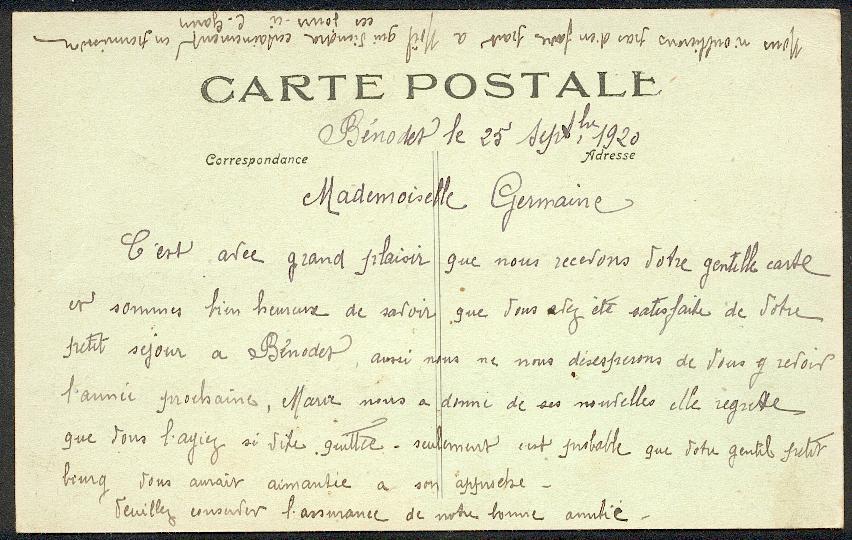 CARTE POSTALE
Bénodet le 25 Septbre 1920
Correspondance
Adresse
Mademoiselle Germaine
C'est avec grand plaisir que nous recevons votre gentille carte
et sommes bien heureux de savoir que vous avez été satisfaite de votre
petit séjour a Bénodet, aussi nous ne nous désespérons de vous y revoir
l'année prochaine, Marie nous a donné de ses nouvelles elle regrette
que vous l'ayiez si vite quittée - seulement est probable que votre gentil petit
bourg vous aurait aimantée a son approche -
Veuillez conserver l'assurance de notre bonne amitié -
Nous n'oublierons pas d'en faire part a Noël qui viendra certainement en permission
ces jours-ci